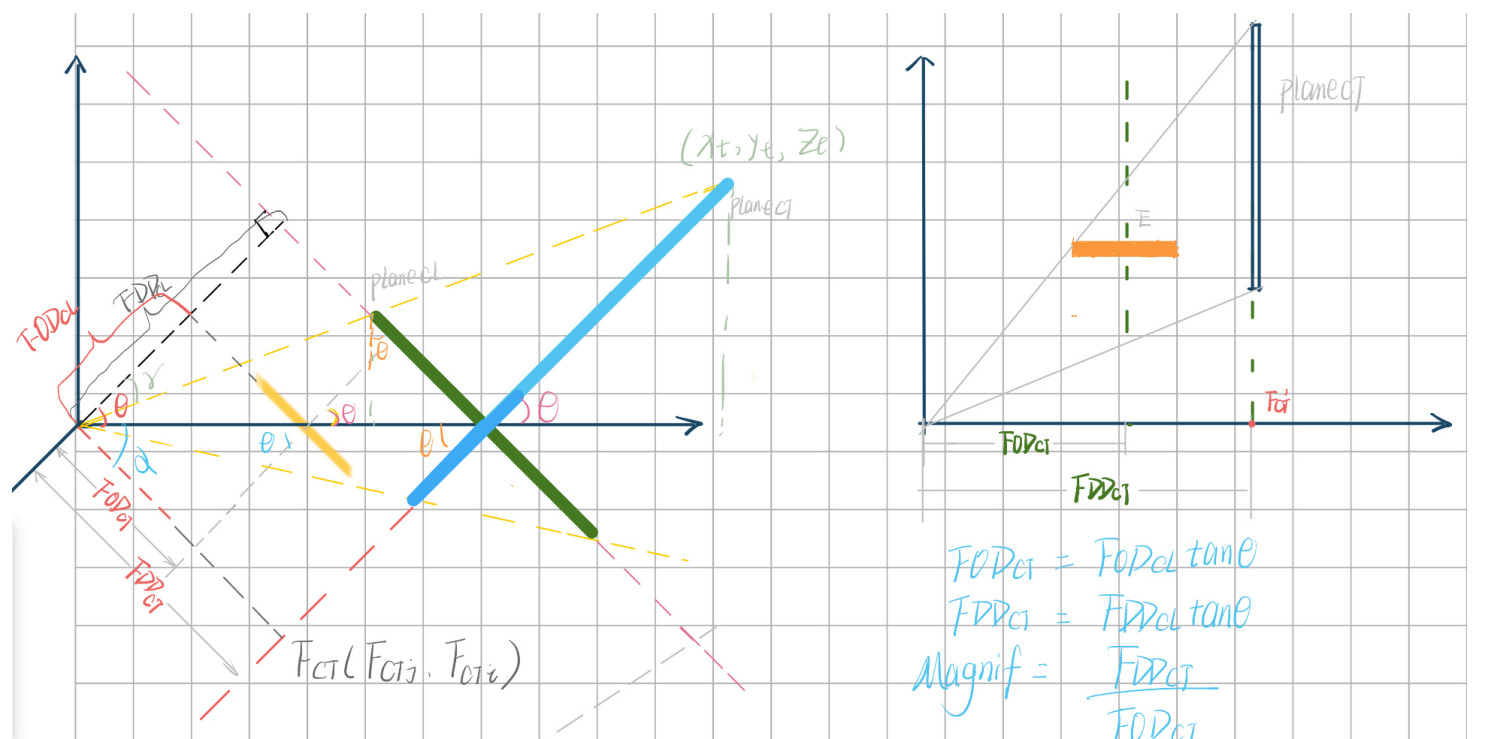 (xt, yt, zt)
planeCT
planeCL
FDDCL
FODCL
γ
θ
θ
θ
θ
θ
θ
α
FODCT
FDDCT
FCT(FCTj, FCTi)
planeCT
E
FCTi
FODCT
FDDCT
FODCT = FODCL tanθ
FDDCT = FDDCL tanθ
Magnif = FDDCT
FODCT